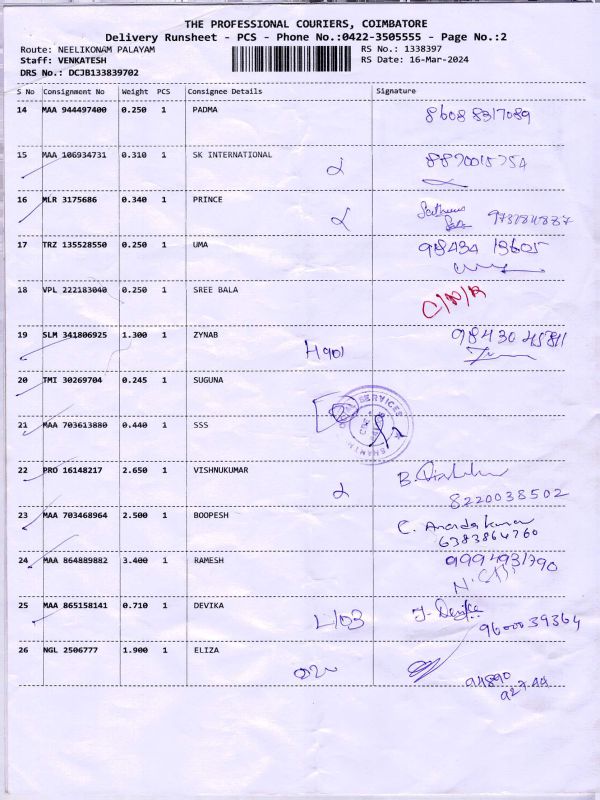 THE PROFESSIONAL COURIERS, COIMBATORE
Delivery Runsheet - PCS - Phone No.:0422-3505555 - Page No.:2
Route: NEELIKONAM PALAYAM RS No.: 1338397
Staff: VENKATESH RS Date: 16-Mar-2024
DRS No.: DCJB133839702
S No Consignment No Weight PCS Consignee Details Signature
14 MAA 944497400 0.250 1 PADMA 8608 8317089
15 MAA 106934731 0.310 1 SK INTERNATIONAL
16 MLR 3175686 0.340 1 PRINCE
17 TRZ 135528550 0.250 1 UMA 98434 13605
18 VPL 222183040 0.250 1 SREE BALA C/N/R
19 SLM 341806925 1.300 1 ZYNAB H901 98430 45811
20 TMI 30269704 0.245 1 SUGUNA
21 MAA 703613880 0.440 1 SSS
22 PRO 16148217 2.650 1 VISHNUKUMAR
8220038502
23 MAA 703468964 2.500 1 BOOPESH C. Ananda kumar
6383864760
24 MAA 864889882 3.400 1 RAMESH 9994931790
25 MAA 865158141 0.710 1 DEVIKA L103 J. Devika
9600039364
26 NGL 2506777 1.900 1 ELIZA
94890
92744